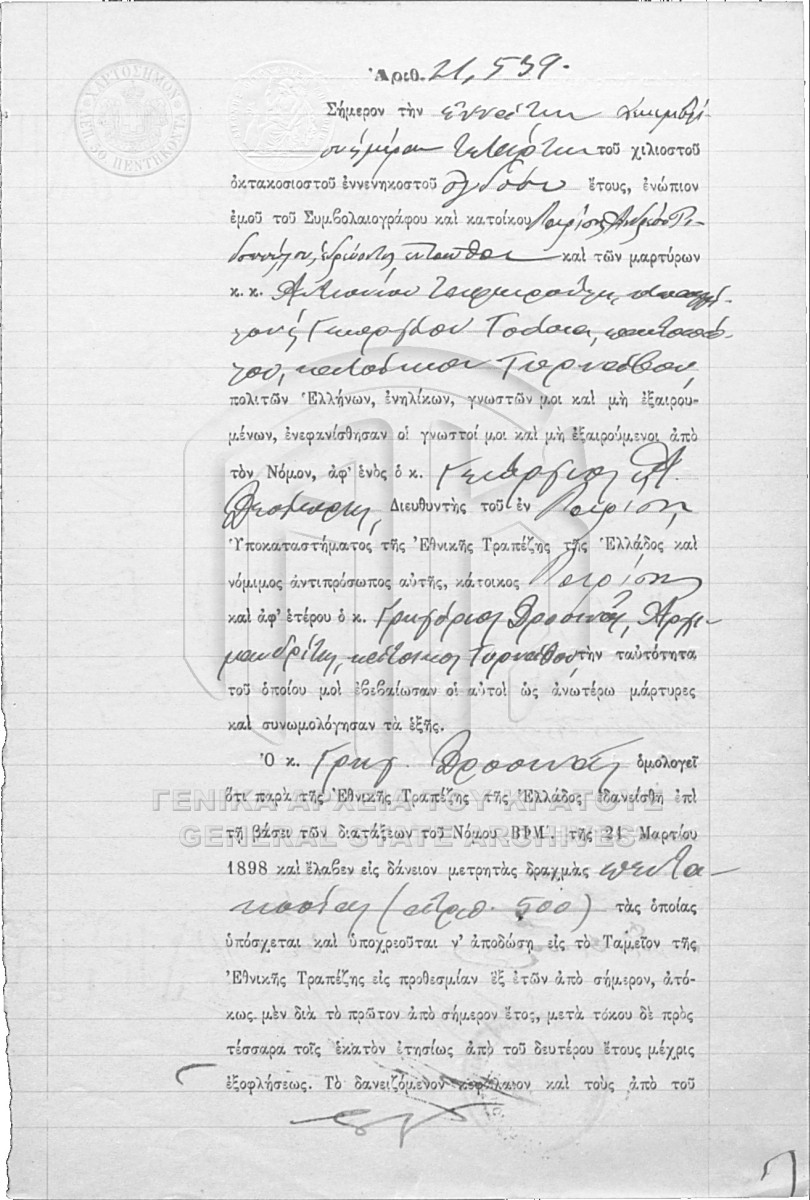 ΧΑΡΤΟΣΗΜΟΝ
ΛΕΠ. 50 ΠΕΝΤΗΚΟΝΤΑ
Ἀριθ. 21,539.
Σήμερον τὴν ἐννάτην Δεκεμβρί-
ου ἡμέραν Τετάρτην τοῦ χιλιοστοῦ
ὀκτακοσιοστοῦ ἐννενηκοστοῦ ὀγδόου ἔτους, ἐνώπιον
ἐμοῦ τοῦ Συμβολαιογράφου καὶ κατοίκου Λαρίσης Ἀνδρέου
ἐνταῦθα καὶ τῶν μαρτύρων
κ. κ. Ἀντωνίου
Γεωργίου
κατοίκων Τυρνάβου,
πολιτῶν Ἑλλήνων, ἐνηλίκων, γνωστῶν μοι καὶ μὴ ἐξαιρου-
μένων, ἐνεφανίσθησαν οἱ γνωστοί μοι καὶ μὴ ἐξαιρούμενοι ἀπὸ
τὸν Νόμον, ἀφ' ἑνὸς ὁ κ. Γεώργιος Α.
Διευθυντὴς τοῦ ἐν Λαρίσῃ
Ὑποκαταστήματος τῆς Ἐθνικῆς Τραπέζης τῆς Ἑλλάδος καὶ
νόμιμος ἀντιπρόσωπος αὐτῆς, κάτοικος Λαρίσης
καὶ ἀφ' ἑτέρου ὁ κ. Γρηγόριος Δροσινᾶς, Ἀρχι-
μανδρίτης, κάτοικος Τυρνάβου, τὴν ταὐτότητα
τοῦ ὁποίου μοὶ ἐβεβαίωσαν οἱ αὐτοὶ ὡς ἀνωτέρω μάρτυρες
καὶ συνωμολόγησαν τὰ ἑξῆς.
Ὁ κ. Γρηγ. Δροσινᾶς ὁμολογεῖ
ὅτι παρὰ τῆς Ἐθνικῆς Τραπέζης τῆς Ἑλλάδος ἐδανείσθη ἐπὶ
τῇ βάσει τῶν διατάξεων τοῦ Νόμου ΒΦΜ΄. τῆς 21 Μαρτίου
1898 καὶ ἔλαβεν εἰς δάνειον μετρητὰς δραχμὰς πεντα-
κοσίας (ἀριθ. 500) τὰς ὁποίας
ὑπόσχεται καὶ ὑποχρεοῦται ν' ἀποδώσῃ εἰς τὸ Ταμεῖον τῆς
Ἐθνικῆς Τραπέζης εἰς προθεσμίαν ἓξ ἐτῶν ἀπὸ σήμερον, ἀτό-
κως μὲν διὰ τὸ πρῶτον ἀπὸ σήμερον ἔτος, μετὰ τόκου δὲ πρὸς
τέσσαρα τοῖς ἑκατὸν ἐτησίως ἀπὸ τοῦ δευτέρου ἔτους μέχρις
ἐξοφλήσεως. Τὸ δανειζόμενον κεφάλαιον καὶ τοὺς ἀπὸ τοῦ
ΓΕΝΙΚΑ ΑΡΧΕΙΑ ΤΟΥ ΚΡΑΤΟΥΣ
GENERAL STATE ARCHIVES